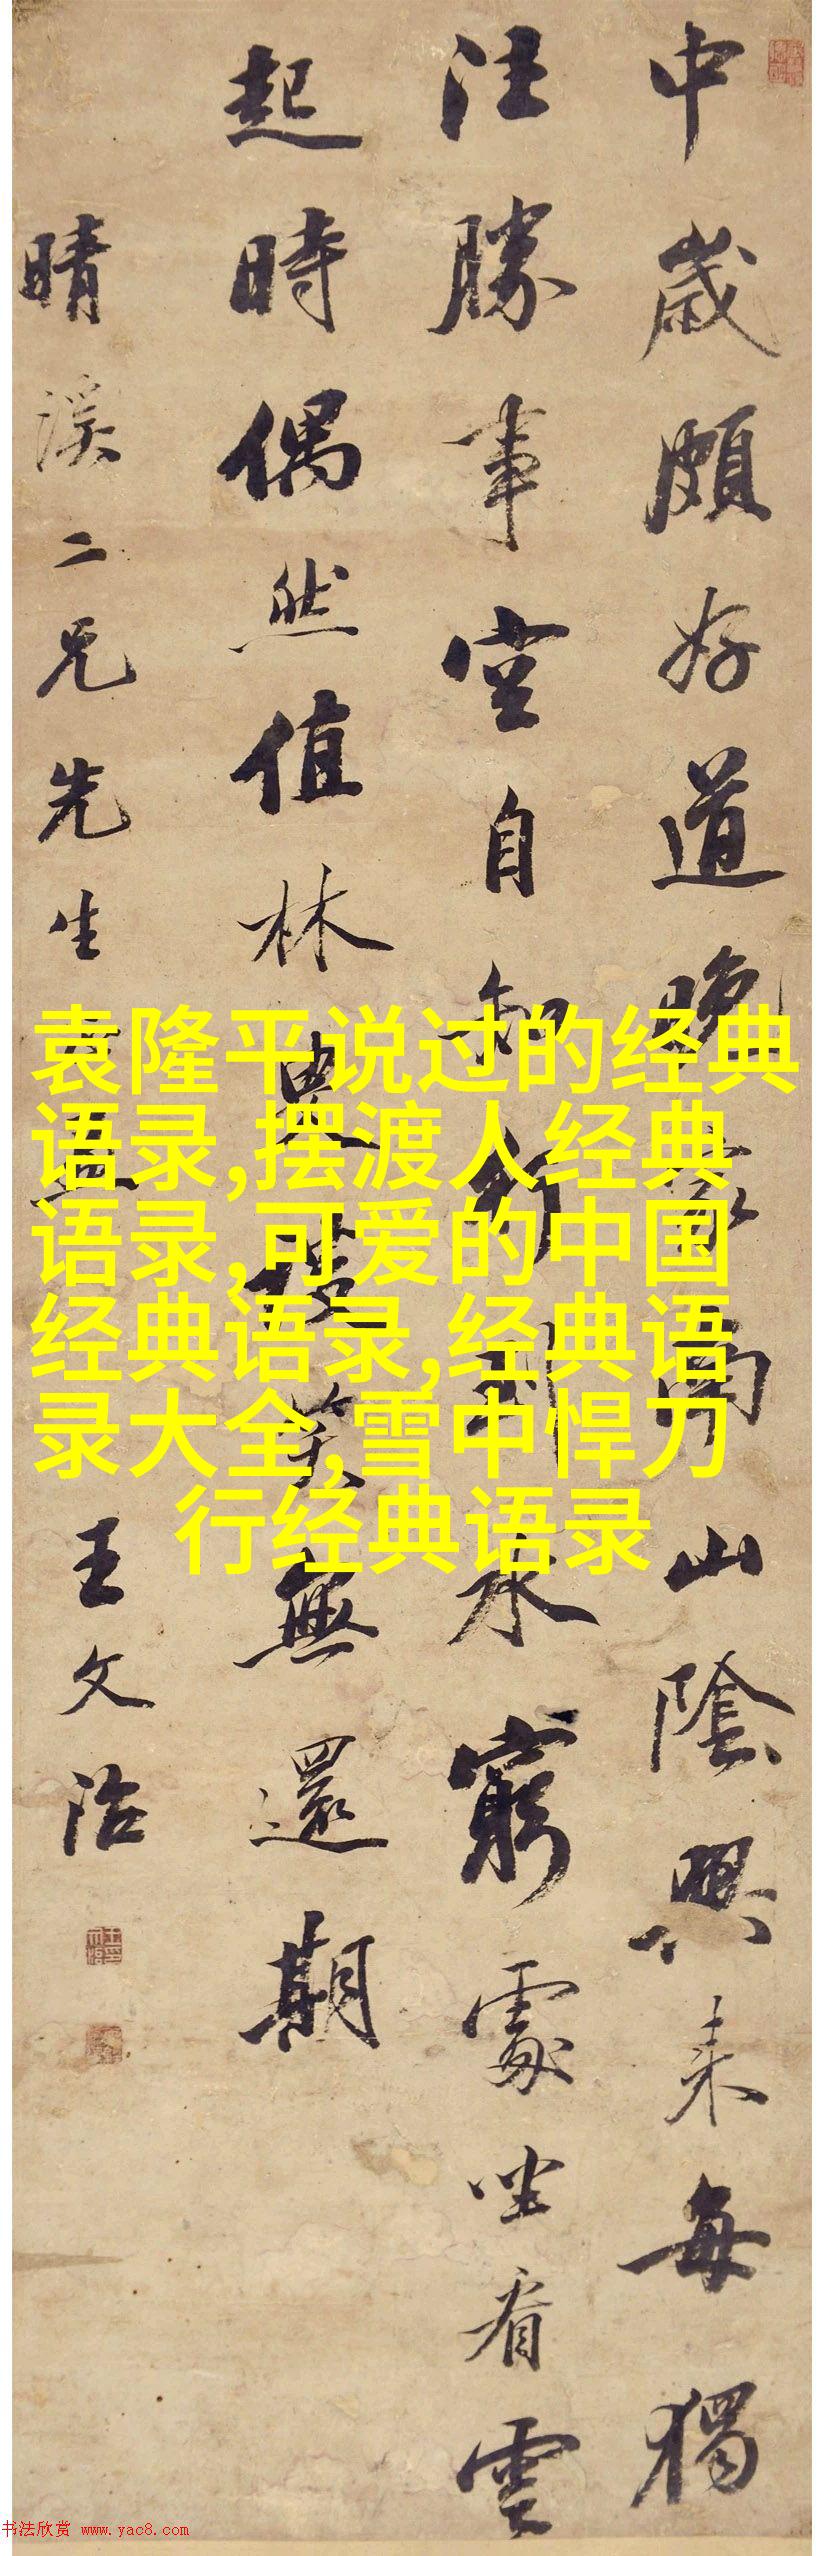 中歲頗好道晚家南山陰興來每獨
往勝事空自知行到水窮處坐看雲
起時偶然值林叟談笑無還期
晴溪二兄先生
王文治
袁隆平说过的经典
语录,摆渡人经典
语录,可爱的中国
经典语录,经典语
录大全,雪中悍刀
行经典语录
书法欣赏 www.yac8.com